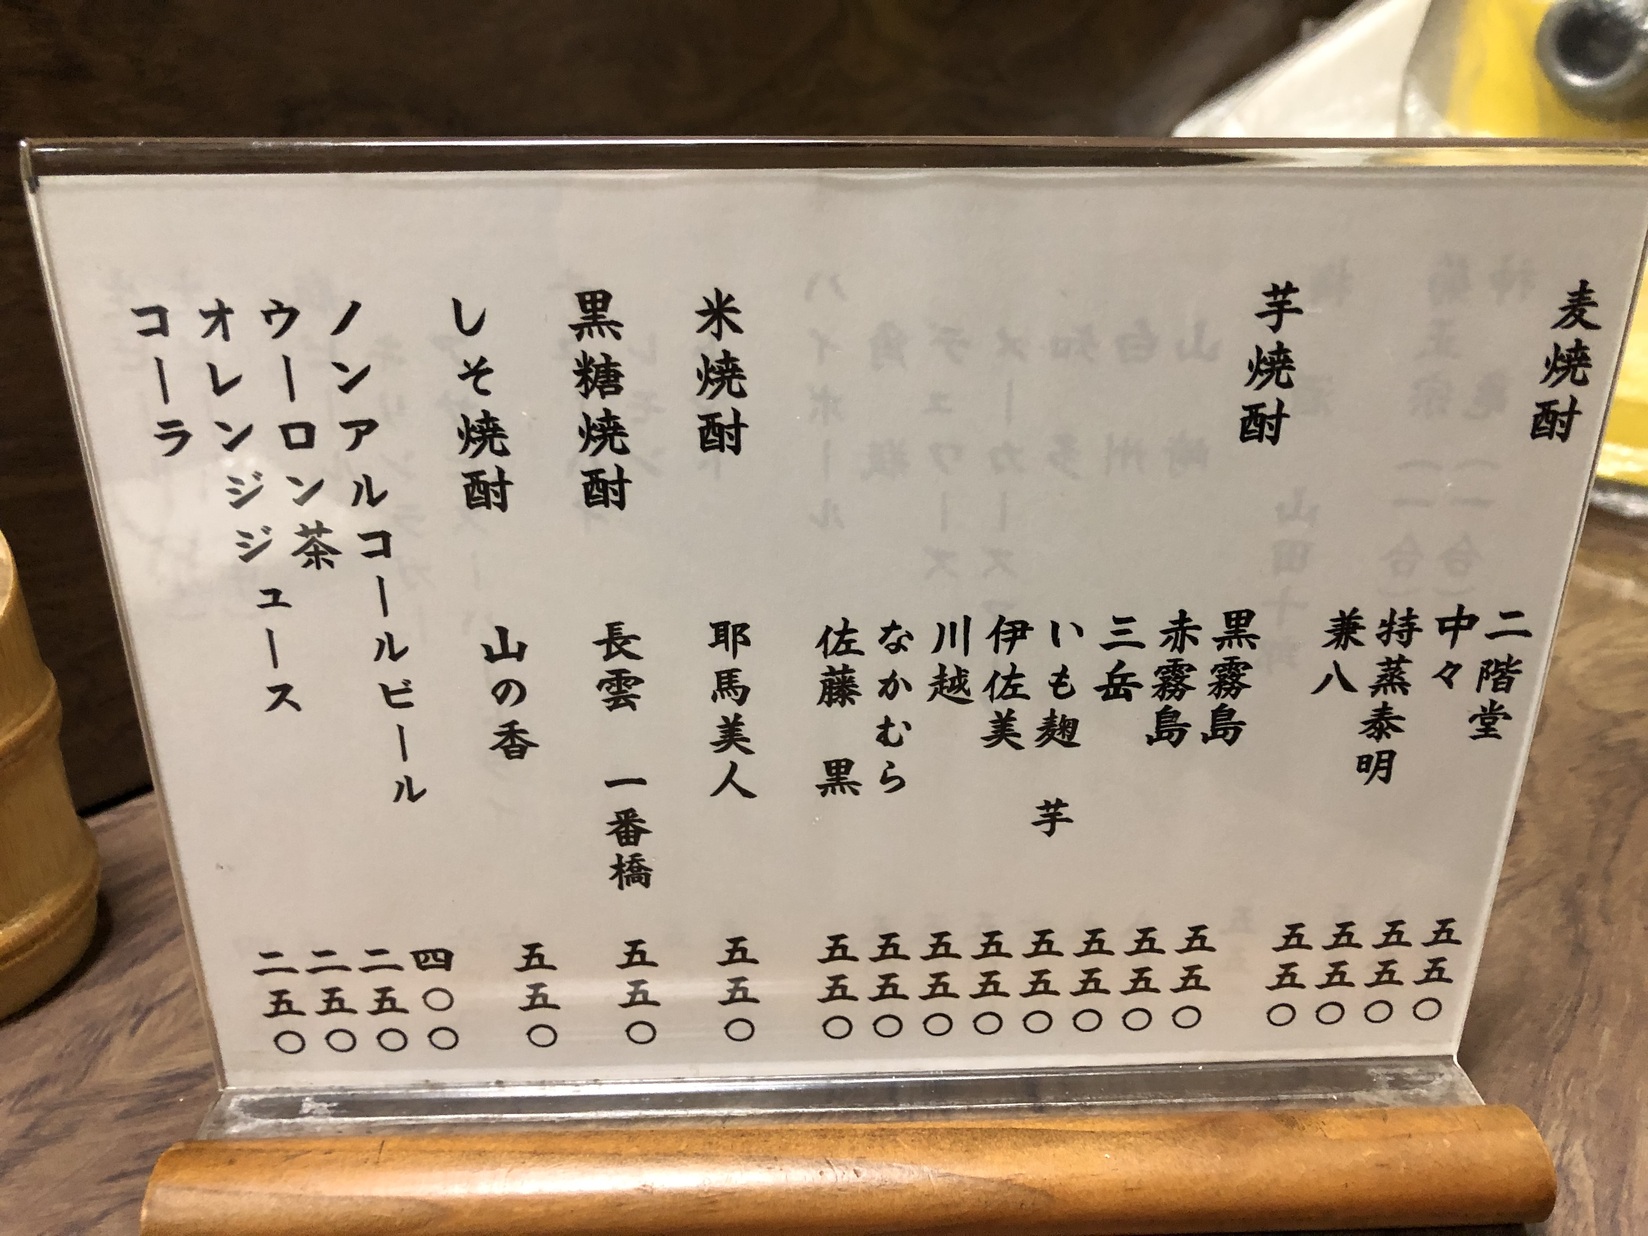 麦焼酎
二階堂 五五〇
中々 五五〇
特蒸泰明 五五〇
兼八 五五〇
芋焼酎
黒霧島 五五〇
赤霧島 五五〇
三岳 五五〇
いも麹 芋 五五〇
伊佐美 五五〇
川越 五五〇
なかむら 五五〇
佐藤 黒 五五〇
米焼酎 耶馬美人 五五〇
黒糖焼酎 長雲 一番橋 五五〇
しそ焼酎 山の香 五五〇
ノンアルコールビール 四〇〇
ウーロン茶 二五〇
オレンジジュース 二五〇
コーラ 二五〇